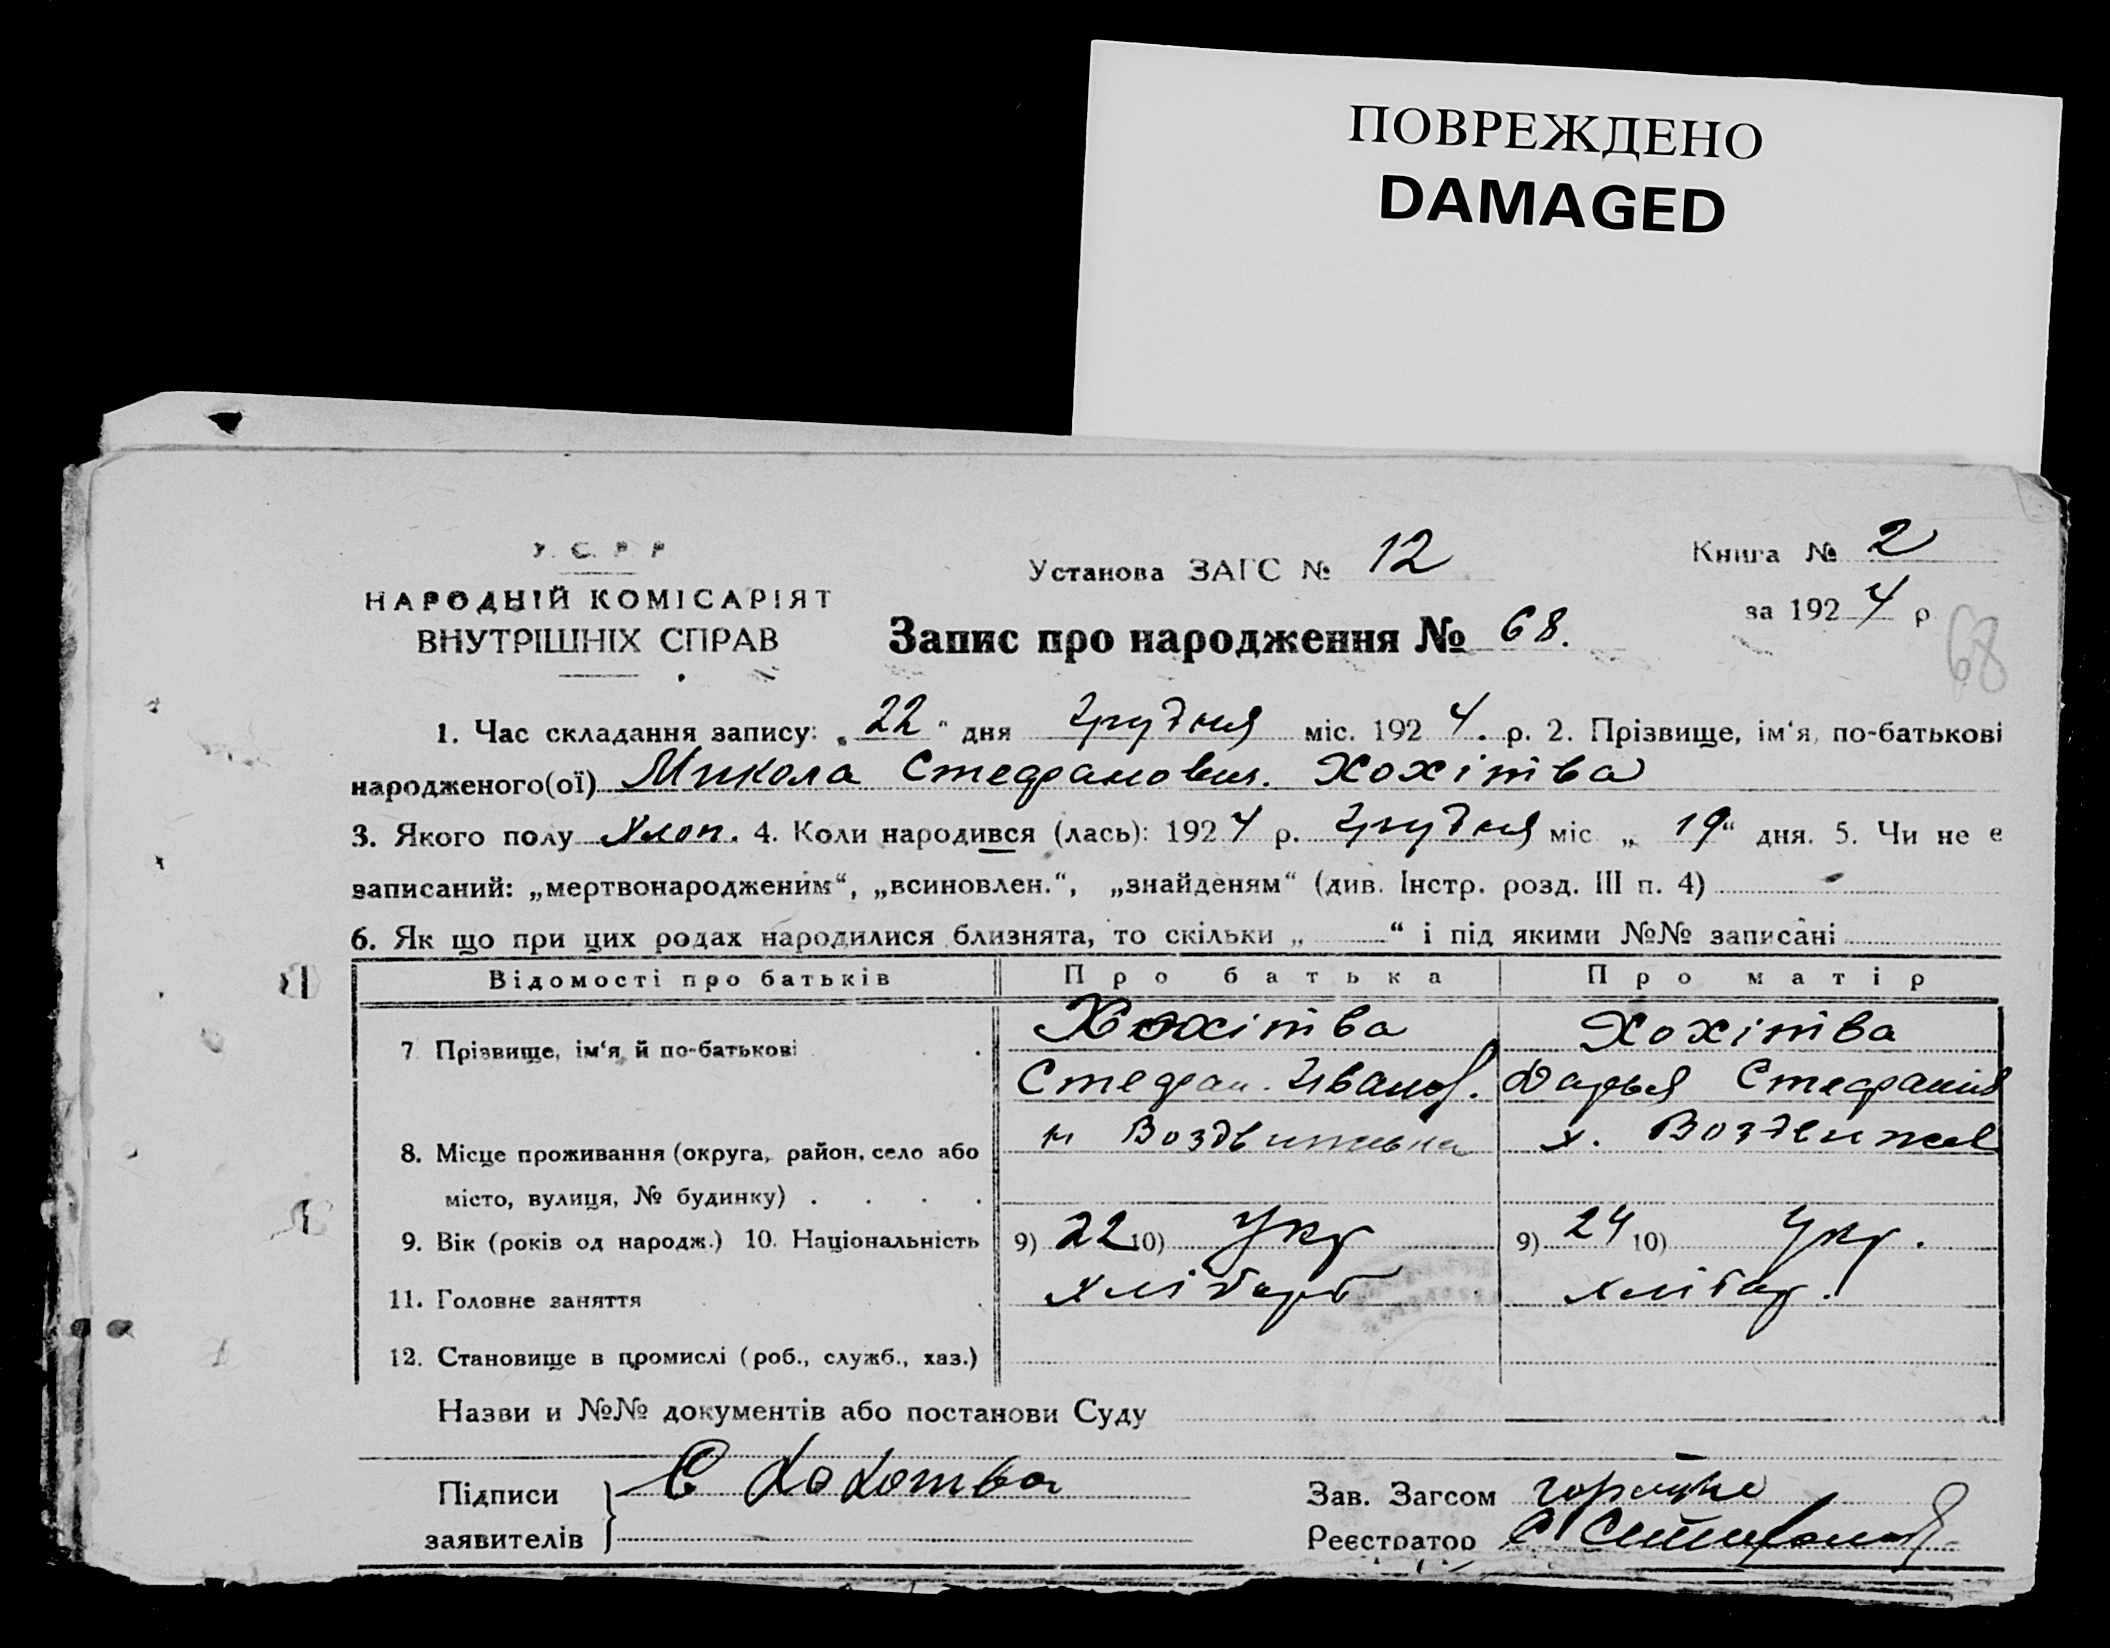 ПОВРЕЖДЕНО
DAMAGED
У. С. Р. Р.
НАРОДНІЙ КОМІСАРІЯТ
ВНУТРІШНІХ СПРАВ
Установа ЗАГС № 12
Книга № 2
за 1924 р
Запис про народження № 68.
68
1. Час складання запису: „22“ дня Грудня міс. 1924. р. 2. Прізвище, ім‘я, по-батькові
народженого(ої) Микола Стефанович. Хохітва
3. Якого полу Хлоп. 4. Коли народився (лась): 1924 р. Грудня міс „ 19“ дня. 5. Чи не є
записаний: „мертвонародженим“, „всиновлен.“, „знайденям“ (див. Інстр. розд. III п. 4)
6. Як що при цих родах народилися близнята, то скільки „ “ і під якими №№ записані
Відомості про батьків Про батька Про матір
7 Прізвище, ім‘я й по-батькові Хохітва Хохітва
Стефан. Іванов. Дарья Стефанія
8. Місце проживання (округа, район, село або х. Воздвиж
місто, вулиця, № будинку)
9. Вік (років од народж.) 10. Національність 9) 22 10) Укр 9) 24 10) Укр.
11. Головне заняття хлібороб хлібор.
12. Становище в промислі (роб., служб., хаз.)
Назви и №№ документів або постанови Суду
Підписи С Хохотва Зав. Загсом
заявителів Реєстратор